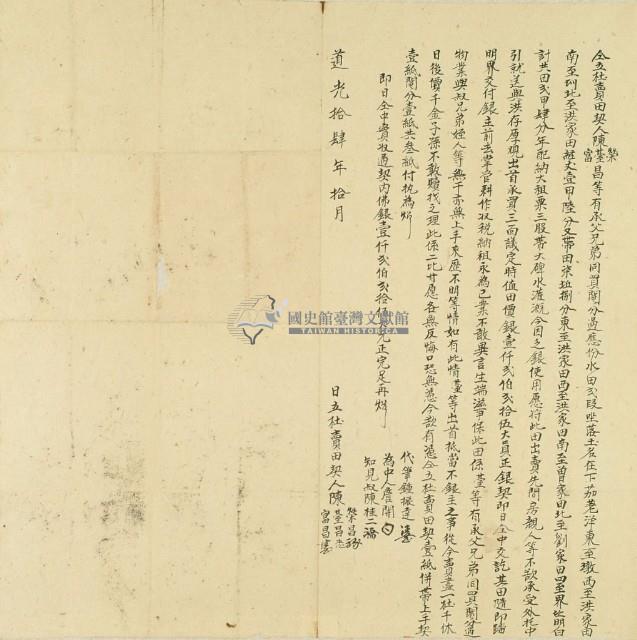 仝立杜賣田契人陳榮蓳富昌等有承父兄弟同買鬮分過應份水田貳段坐落土名在下茄荖洋東至墩西至洪家田
南至圳北至洪家田經丈壹甲陸分又帶田柒坵捌分東至洪家田西至洪家田南至曾家田北至劉家田四至界址明白
計共田貳甲肆分年配納大租粟三股帶大碑水灌溉今因乏銀使用愿將此田出賣先問房親人等不欲承受外托中
引就送與洪存厚觀出首承買三面議定時值田價銀壹仟貳伯貳拾伍大員正銀契即日仝中交訖其田隨即踏
明界交付銀主前去掌管耕作收稅納租永為己業不敢異言生端滋事保此田係蓳等有承父兄弟同買鬮分過
物業與叔兄弟姪人等無干亦無上手來歷不明等情如有此情蓳等出首抵當不干銀主之事從今賣盡一杜千休
日後價千金子孫不敢贖找之理此係二比甘愿各無反悔口恐無憑今欲有憑仝立杜賣田契壹紙併帶上手契
壹紙鬮分壹紙共叁紙付執為炤
即日仝中實收過契內佛銀壹仟貳伯貳拾伍員正完足再炤
代筆鍾
為中人詹開
知見叔陳桂二
道光拾肆年拾月
日立杜賣田契人陳榮昌蓳昌富昌
國史館臺灣文獻館
TAIWAN HISTORICA